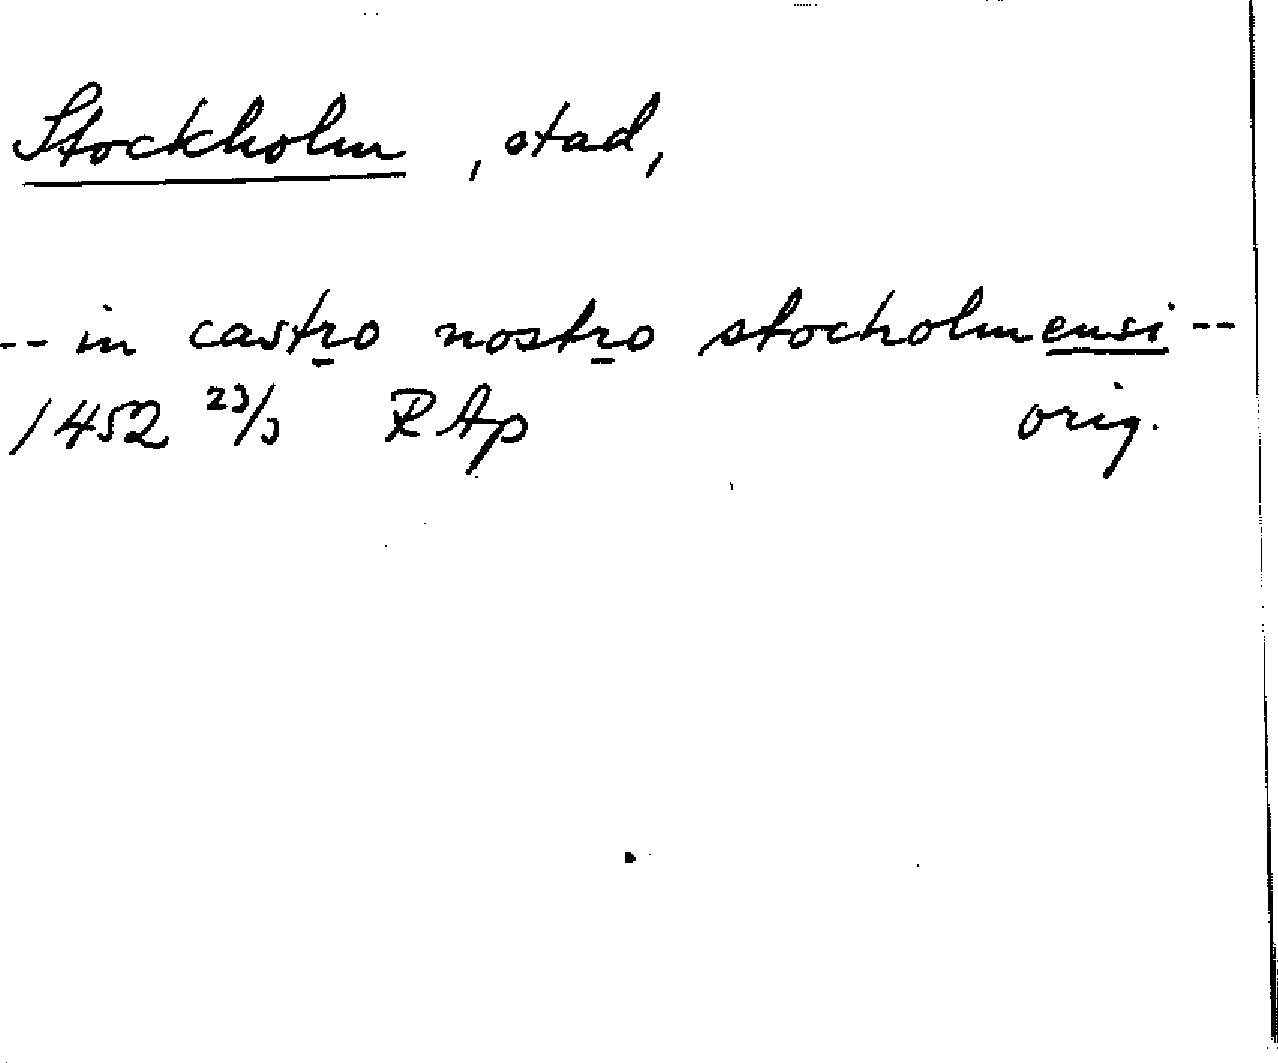 Stockholm , stad,
-- in castro nostro stocholmensi --
1452 23/3 RAp orig.